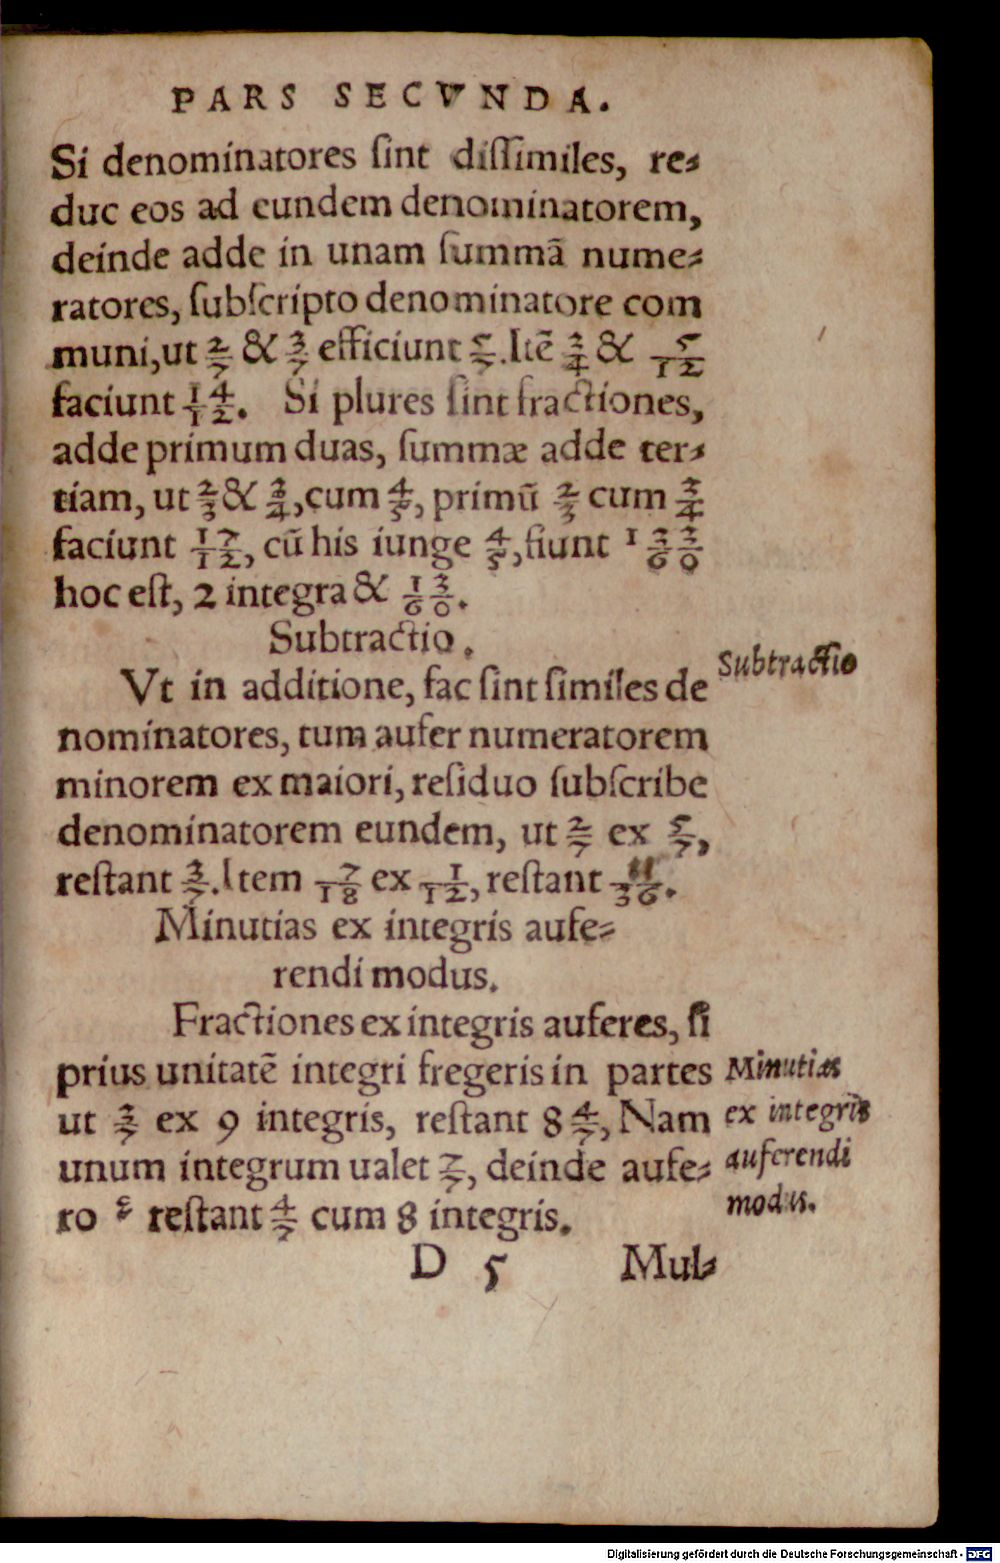 PARS SECVNDA.
Si denominatores ſint diſſimiles, re⸗
duc eos ad eundem denominatorem,
deinde adde in unam ſummã nume⸗
ratores, ſubſcripto denominatore com
muni, ut 2/7 & 3/7 efficiunt 5/7. Itẽ 3/4 & 5/12
faciunt 14/12. Si plures ſint fractiones,
adde primum duas, ſummæ adde ter⸗
tiam, ut 2/3 & 3/4, cum 4/5, primũ 2/3 cum 3/4
faciunt 17/12, cũ his iunge 4/5, fiunt 133/60
hoc eſt, 2 integra & 13/60.
Subtractio.
Subtractio
Vt in additione, fac ſint ſimiles de
nominatores, tum aufer numeratorem
minorem ex maiori, reſiduo ſubſcribe
denominatorem eundem, ut 2/7 ex 5/7,
reſtant 3/7. Item 7/18 ex 1/12, reſtant 11/36.
Minutias ex integris aufe⸗
rendi modus.
Fractiones ex integris auferes, ſi
prius unitatẽ integri fregeris in partes
ut 3/7 ex 9 integris, reſtant 8 4/7, Nam
unum integrum ualet 7/7, deinde aufe⸗
ro reſtant 4/7 cum 8 integris.
Minutias
ex integris
auferendi
modus.
D 5 Mul⸗
Digitalisierung gefördert durch die Deutsche Forschungsgemeinschaft - DFG